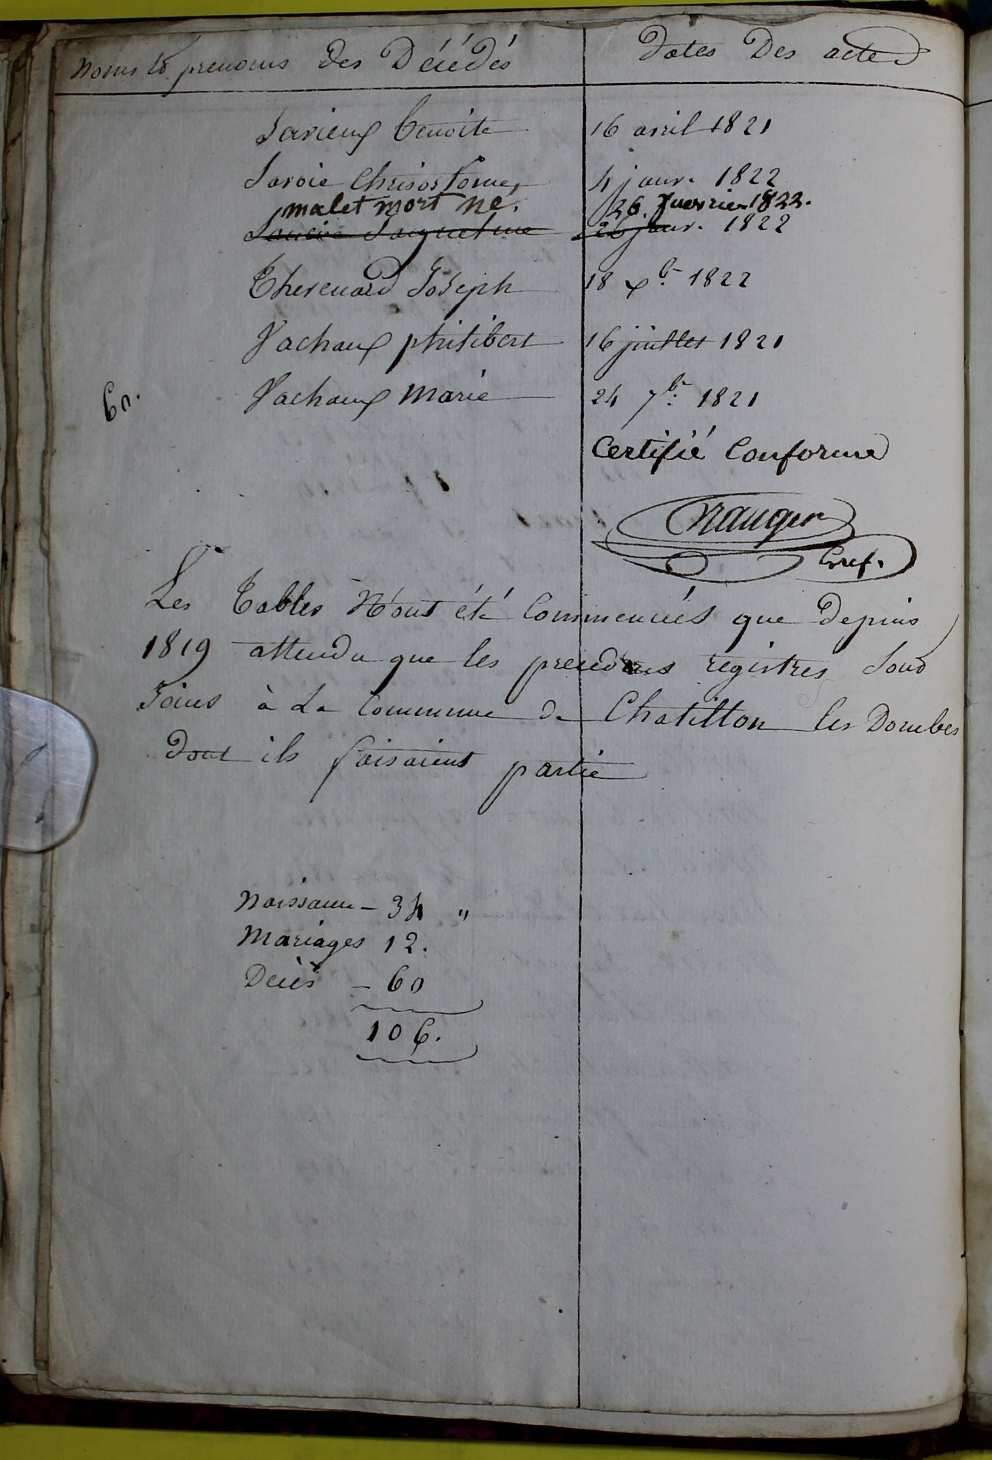 Noms & prenoms des Décédés Dates Des actes
Savieux Benoite 16 avril 1821
Savoie Chrisostome 4 janv. 1822
malet mort né. 26. Janvier 1822.
Savoie Jaqueline 26 janv. 1822
Thevenard Joseph 18 xb. 1822
Vachoux philibert 16 juillet 1821
60. Vachoux Marie 24 7b. 1821
Certifié Conforme
Nauger
Gref.
Les Tables N'ont été Commencées que Depuis
1819 attendu que les precedens registres Sont
Joins à La Commune de Chatillon les Dombes
Dont ils faisaient partie
Naissances - 34 "
Mariages 12.
Décès - 60
106.